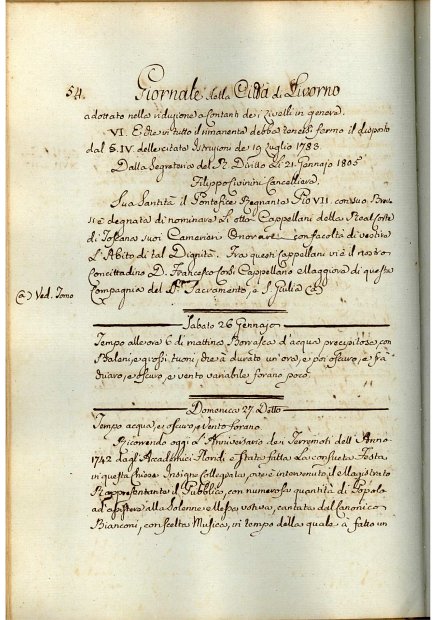 54.
Giornale della Città di Livorno
adottato nella riduzione a contanti dei Livelli in genere.
VI. E che in tutto il rimanente debba tenersi fermo il disposto
dal §. IV. delle citate Istruzioni de 19 Luglio 1783.
Dalla Segreteria del R. Diritto Li 21. Gennajo 1805
Filippo Civinini Cancelliere.
Sua Santità il Pontefice Regnante Pio VII. con suo Bre-
ve si è degnata di nominare Li otto Cappellani della Real Corte
di Toscana suoi Camerieri Onorarj con facoltà di vestire
L'Abito di tal Dignità. Fra questi Cappellani vi è il nostro
Concittadino D. Francesco Cappellano Maggiore di questa
(a) Ved. Tomo
Compagnia del SS. Sacramento, e S. Giulia (a)
Sabato 26 Gennajo
Tempo alle ore 6 di mattina Borrasca d'acqua precipitosa, con
Baleni, e grossi tuoni, che à durato un'ora, e poi oscuro, e frà
chiaro, e oscuro, e vento variabile forano poco.
Domenica 27 Detto
Tempo acqua, e oscuro, e vento forano.
Ricorrendo oggi L'Anniversario dei Terremoti dell'Anno
1742. dagl'Accademici è stata fatta La consueta Festa
in questa Chiesa Insigne Collegiata, ove è intervenuto il Magistrato
Rappresentante il Pubblico, con numerosa quantità di Popolo
ad assistere alla Solenne Messa votiva, cantata dal Canonico
Bianconi, con scelta Musica, in tempo della quale à fatto un